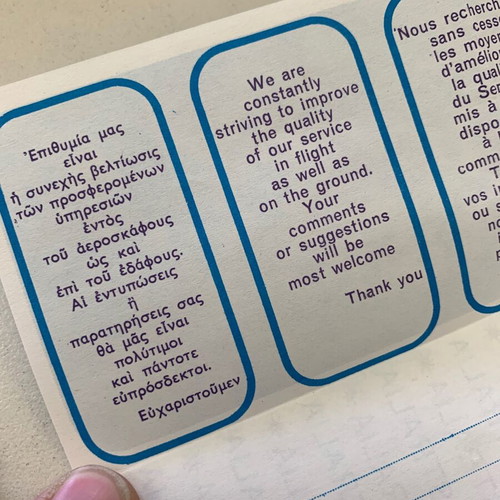 Ἐπιθυμία μας
εἶναι
ἡ συνεχὴς βελτίωσις
τῶν προσφερομένων
ὑπηρεσιῶν
ἐντὸς
τοῦ ἀεροσκάφους
ὡς καὶ
ἐπὶ τοῦ ἐδάφους.
Αἱ ἐντυπώσεις
ἢ
παρατηρήσεις σας
θὰ μᾶς εἶναι
πολύτιμοι
καὶ πάντοτε
εὐπρόσδεκτοι.
Εὐχαριστοῦμεν
We are
constantly
striving to improve
the quality
of our service
in flight
as well as
on the ground.
Your
comments
or suggestions
will be
most welcome
Thank you
Nous
sans
les
la
du
mis à
à
vos
ou